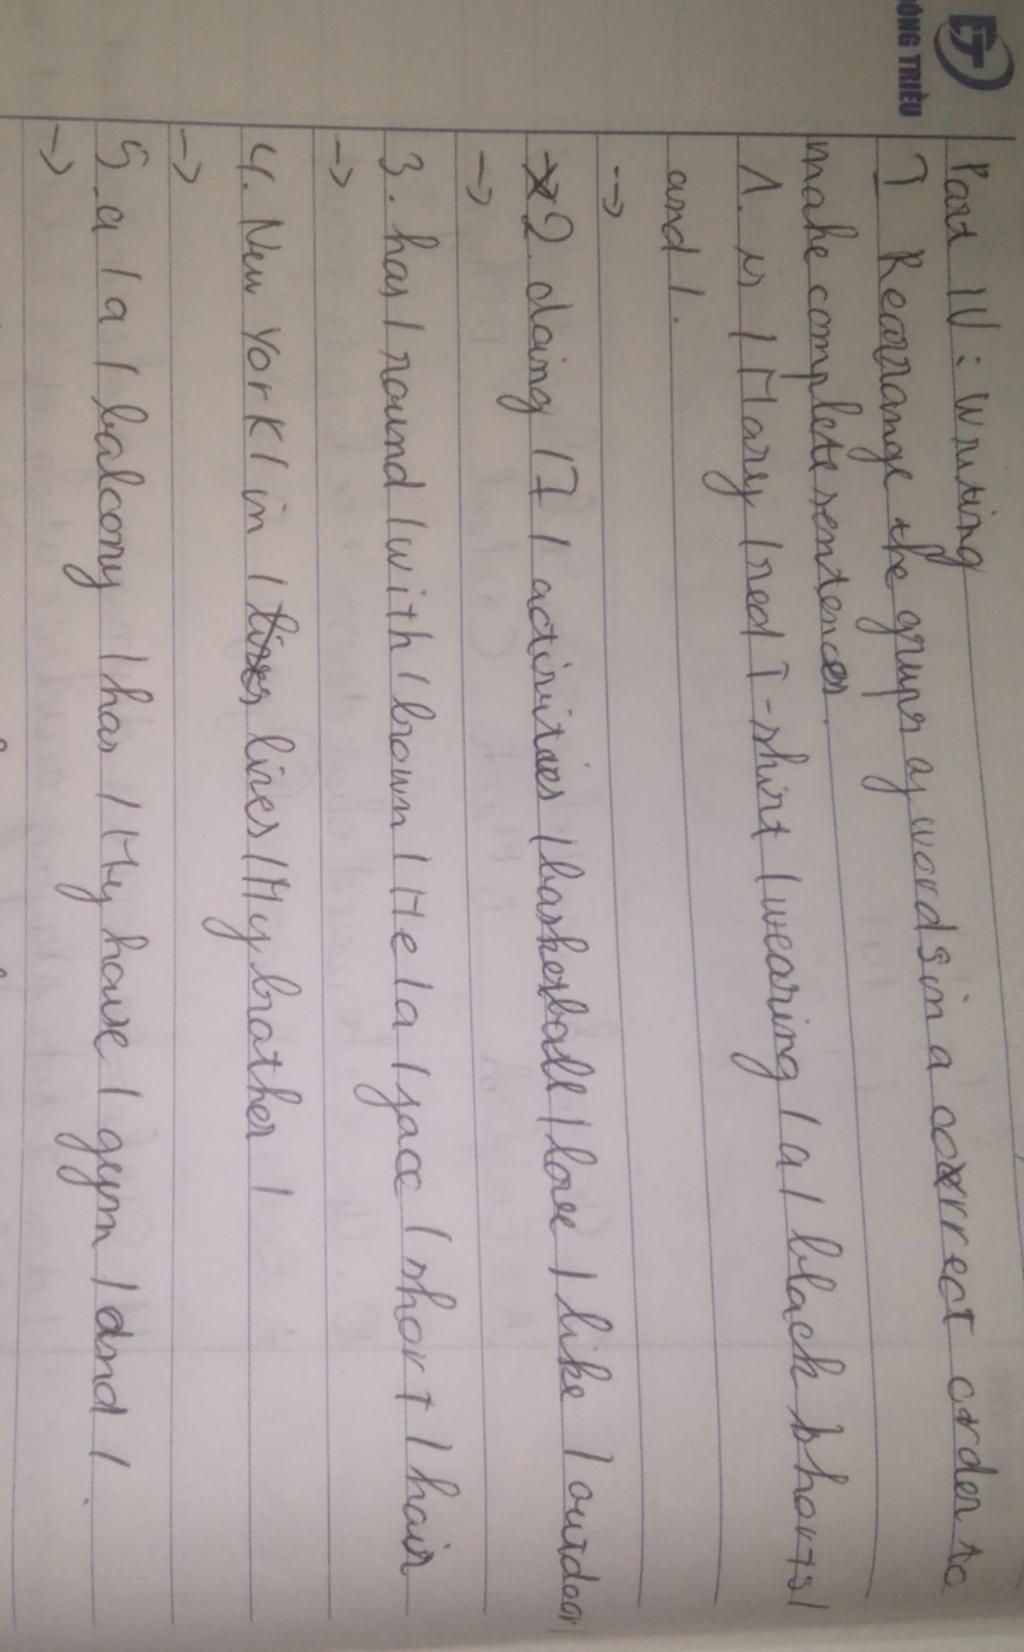 ĐÔNG TRIỀU
Part IV: Writing
I Rearrange the grups of words in a correct order to
make complete sentences.
1. is / Mary / red T-shirt / wearing / a / black shorts /
and /.
->
2. doing / I / activities / basketball / love / like / outdoor /
->
3. has / round / with / brown / He / a / face / short / hair
->
4. New York / in / lives / My brother /
->
5. a / a / balcony / has / My house / gym / and /.
->